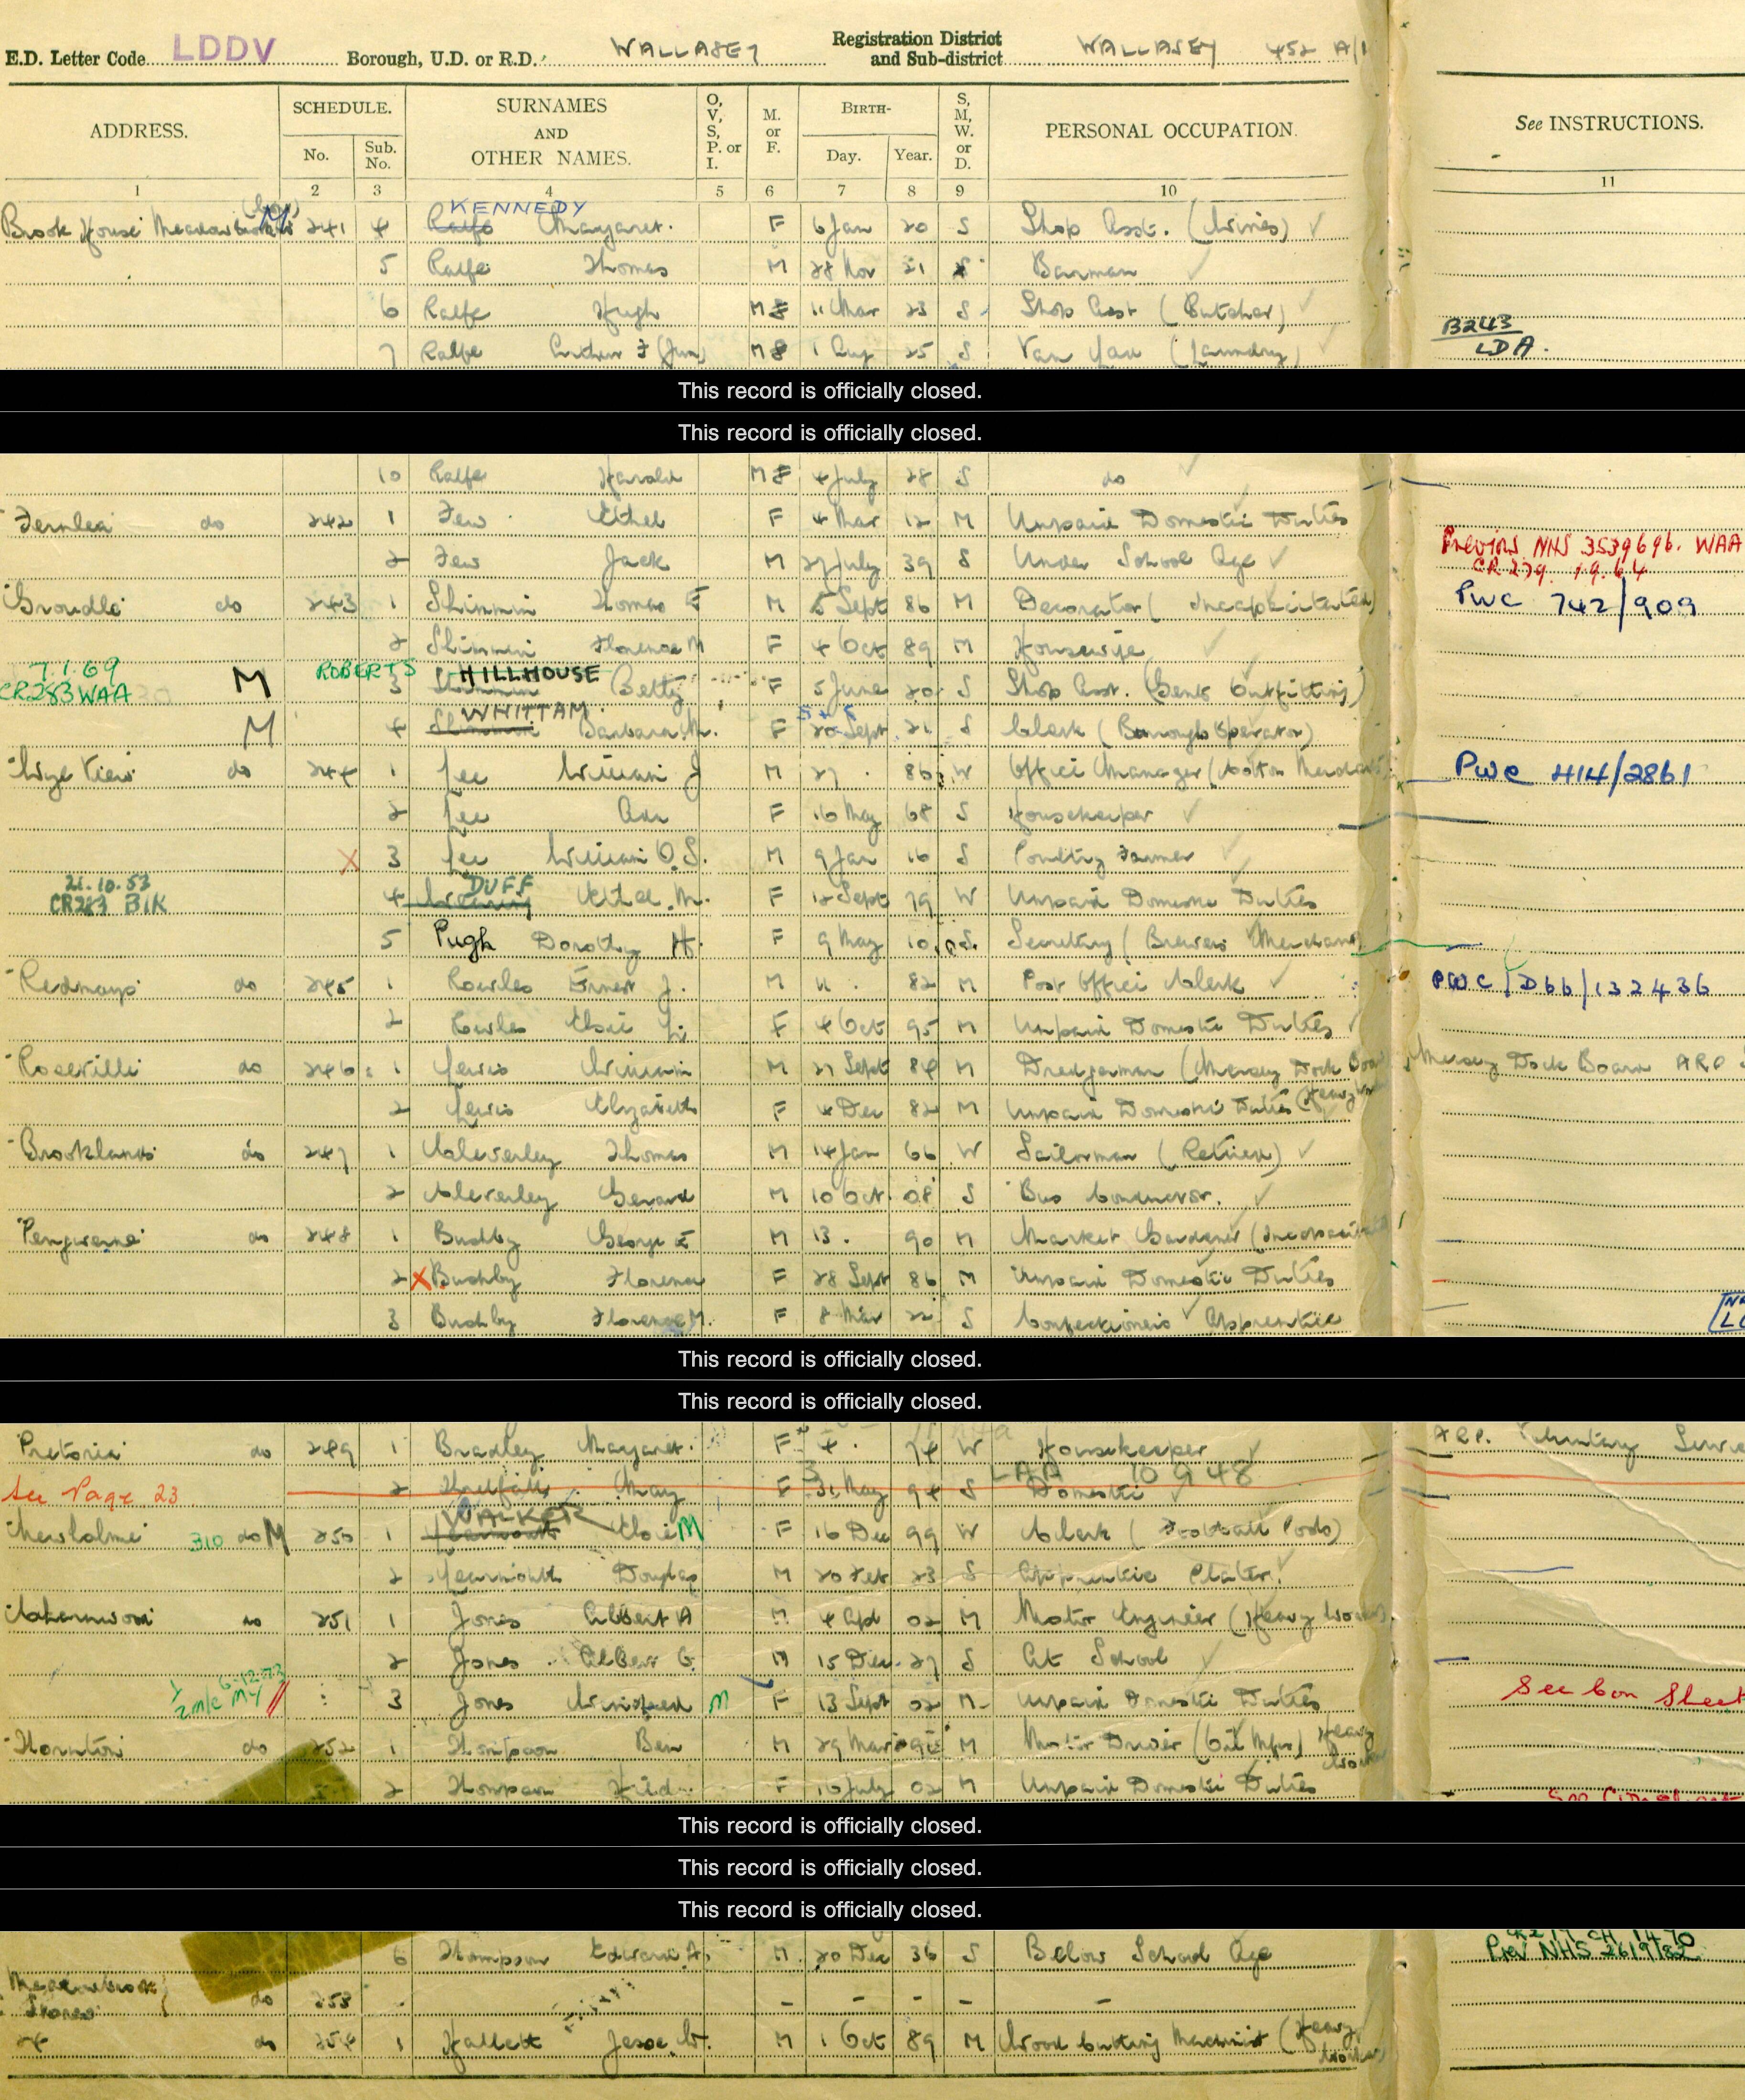 E.D. Letter Code LDDV Borough, U.D. or R.D. WALLASEY Registration District and Sub-district WALLASEY 452 A/1
ADDRESS. SCHEDULE. No. Sub. No. SURNAMES AND OTHER NAMES. O, V, S, P. or I. M. or F. BIRTH- Day. Year. S, M, W. or D. PERSONAL OCCUPATION. See INSTRUCTIONS.
1 2 3 4 5 6 7 8 9 10 11
KENNEDY
Brook House 241 4 Ralfe Margaret. F 6 Jan 20 S Shop Asst. (Wines)
5 Ralfe Thomas M 28 Nov 21 S Barman
6 Ralfe Hugh M 11 Mar 23 S Shop Asst (Butcher)
B243
LDA.
7 Ralfe Arthur F (Jun) M 1 Aug 25 S Van (Laundry)
This record is officially closed.
This record is officially closed.
10 Ralfe Harold M 4 July 28 S do
Fernlea do 242 1 Few Ethel F 4 Mar 12 M Unpaid Domestic Duties
2 Few Jack M 27 July 39 S Under School Age
Previous NHS 3539696. WAA
CR 279. 1.9.64
Groudle do 243 1 Shimmin Thomas E M 5 Sept 86 M Decorator (Incapacitated) PWC 742/909
2 Shimmin Florence M F 4 Oct 89 M Housewife
7.1.69
CR283 WAA M ROBERTS HILLHOUSE
3 Shimmin Betty F 5 June 20 S Shop Asst. (Gents Outfitting)
WHITTAM
M 4 Shimmin Barbara M. F Sept 21 S Clerk (Burroughs Operator)
Wye View do 244 1 Lee William J M 27 . 86 W Office Manager (Cotton Merchants) PWC 414/2861
2 Lee Ada F 16 May 68 S Housekeeper
X 3 Lee William O.S. M 9 Jan 16 S Poultry Farmer
21.10.53
CR283 BIK DUFF
4 Ethel M. F 12 Sept 79 W Unpaid Domestic Duties
5 Pugh Dorothy H. F 9 May 10 S. Secretary (Brewers Merchants)
Redmays do 245 1 Rowles Ernest J. M 11 . 82 M Post Office Clerk PWC/D66/132436
2 Rowles Elsie F 4 Oct 95 M Unpaid Domestic Duties
Roseville do 246 1 Lewis William M 27 Sept 84 M Dredgerman (Mersey Dock Board Mersey Dock Board ARP
2 Lewis Elizabeth F 4 Dec 82 M Unpaid Domestic Duties (Heavy
Brooklands do 247 1 Cleverley Thomas M 14 Jan 66 W Sailorman (Retired)
2 Cleverley Gerard M 10 Oct 08 S Bus Conductor.
do 248 1 Bushby George E M 13 . 90 M Market Gardener (Incapacitated
2 X Bushby Florence F 28 Sept 86 M Unpaid Domestic Duties
3 Bushby Florence M. F 8 Mar 22 S Confectioners Apprentice
This record is officially closed.
This record is officially closed.
Pretoria do 249 1 Bradley Margaret. F 4 . 74 W Housekeeper A.R.P. Voluntary
LAA 10 9 48
See Page 23 2 Threlfall May F 31 May 94 S Domestic
WALKER
Newholme 310 do M 250 1 Yearmouth Elsie M F 16 Dec 99 W Clerk (Football Pools)
2 Yearmouth Douglas M 20 Feb 23 S Apprentice Plater.
do 251 1 Jones Albert A M 4 Apl 02 M Motor Engineer (Heavy Worker)
2 Jones Albert G. M 15 Dec 27 S At School
6-12-73
3 Jones Winifred M F 13 Sept 02 M Unpaid Domestic Duties See Con Sheet
Thornton do 252 1 Thompson Ben M 29 Mar M Motor Driver (Oil Mfrs) Heavy Worker
2 Thompson F 16 July 02 M Unpaid Domestic Duties
This record is officially closed.
This record is officially closed.
This record is officially closed.
6 Thompson Edward A. M 20 Dec 36 S Below School Age Prev NHS
Meadowbrook
Stores do 253 - - - - -
do 254 1 Hallett Jesse W. M 1 Oct 89 M Wood Cutting Machinist (Heavy Worker)